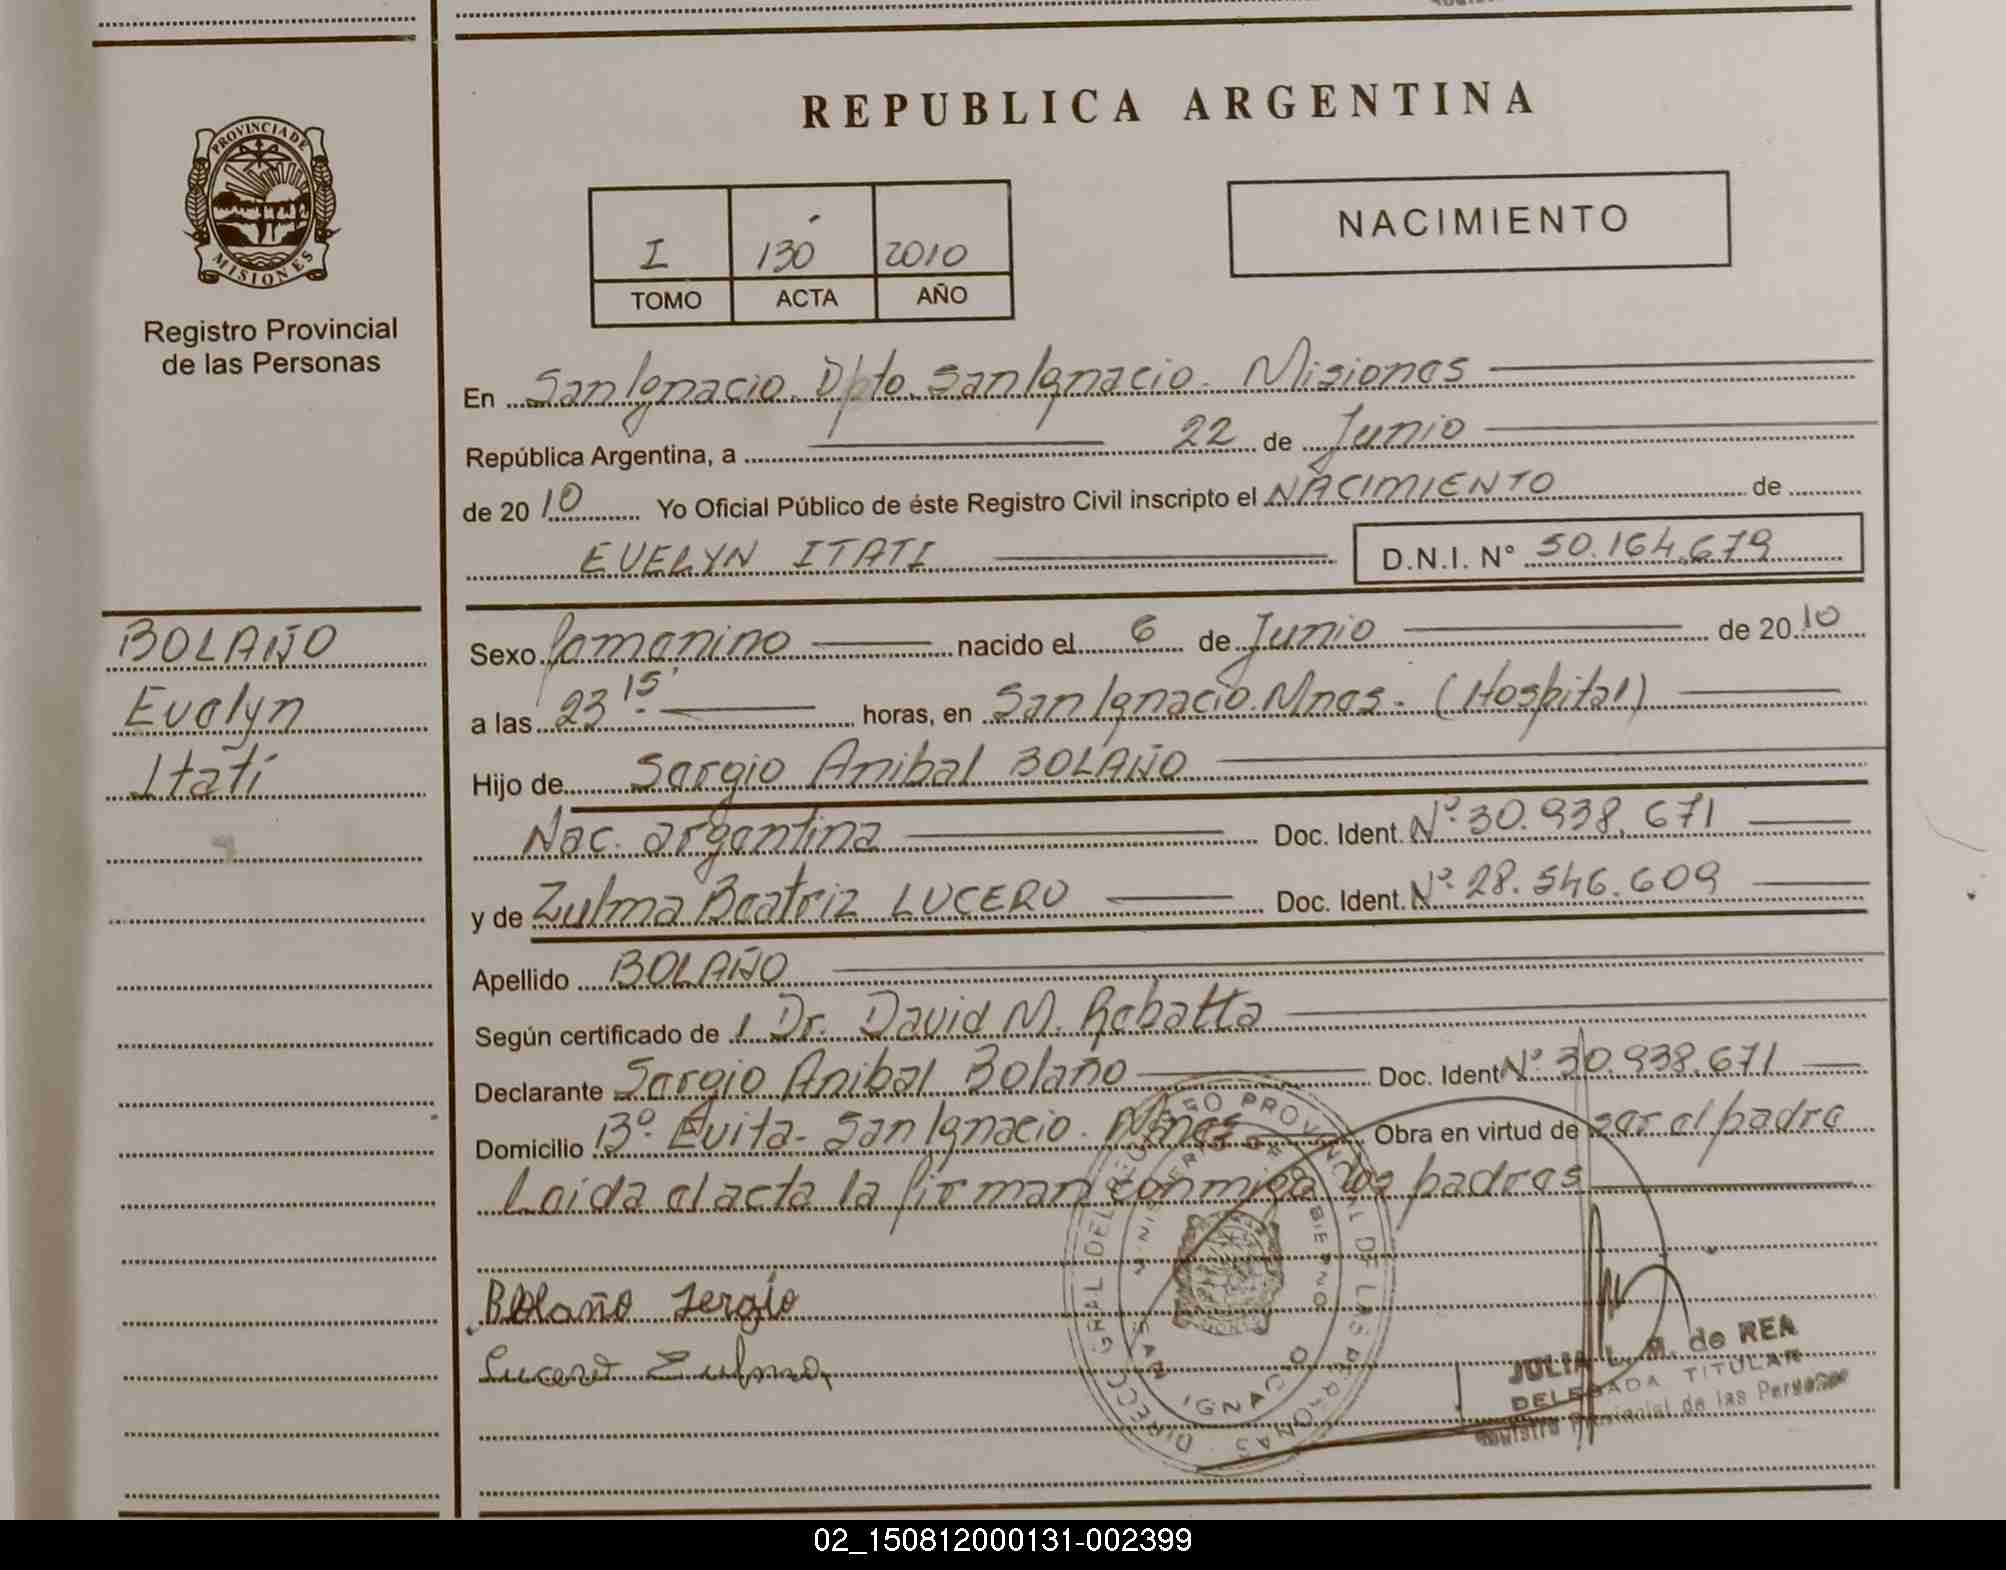 REPUBLICA ARGENTINA
PROVINCIA DE
MISIONES
Registro Provincial
de las Personas
I 130 2010
TOMO ACTA AÑO
NACIMIENTO
En San Ignacio. Dpto. San Ignacio. Misiones
República Argentina, a 22 de Junio
de 20 10 Yo Oficial Público de éste Registro Civil inscripto el NACIMIENTO de
EVELYN ITATI D.N.I. N° 50.164.679
BOLAÑO
Evelyn
Itatí
Sexo femenino nacido el 6 de Junio de 20 10
a las 23 15' horas, en San Ignacio. Mnes. (Hospital)
Hijo de Sergio Anibal BOLAÑO
Nac. argentina Doc. Ident. Nº 30.938.671
y de Zulma Beatriz LUCERO Doc. Ident. Nº 28.546.609
Apellido BOLAÑO
Según certificado de Dr. David M. Rebatta
Declarante Sergio Anibal Bolaño Doc. Ident Nº 30.938.671
Domicilio Bº. Evita - San Ignacio. Mnes. Obra en virtud de ser el padre
Leida el acta la firman conmigo los padres
Bolaño Sergio
Lucero Zulma
DIRECC. GRAL DEL REGISTRO PROVINCIAL DE LAS PERSONAS
MINISTERIO DE GOBIERNO
SAN IGNACIO
JULIA L. de REA
DELEGADA TITULAR
Registro Provincial de las Personas
02_150812000131-002399